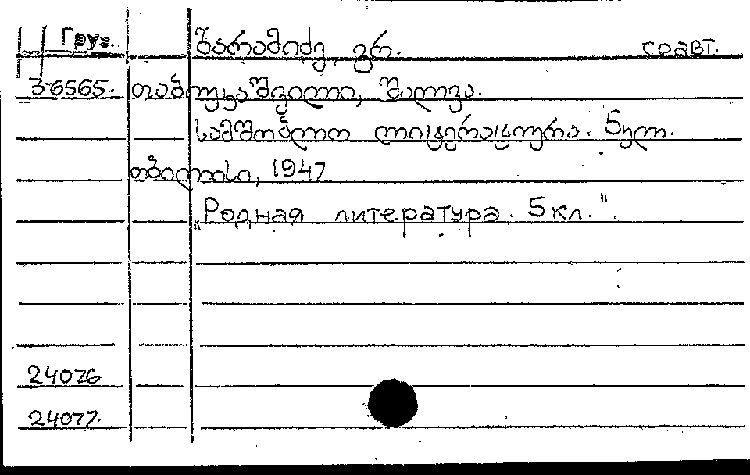 Груз. ბარამიძე, გრ. соавт.
36565. თაბუკაშვილი, შალვა.
სამშობლო ლიტერატურა. 5 კლ.
თბილისი, 1947
„Родная литература. 5 кл."
24076
24077.